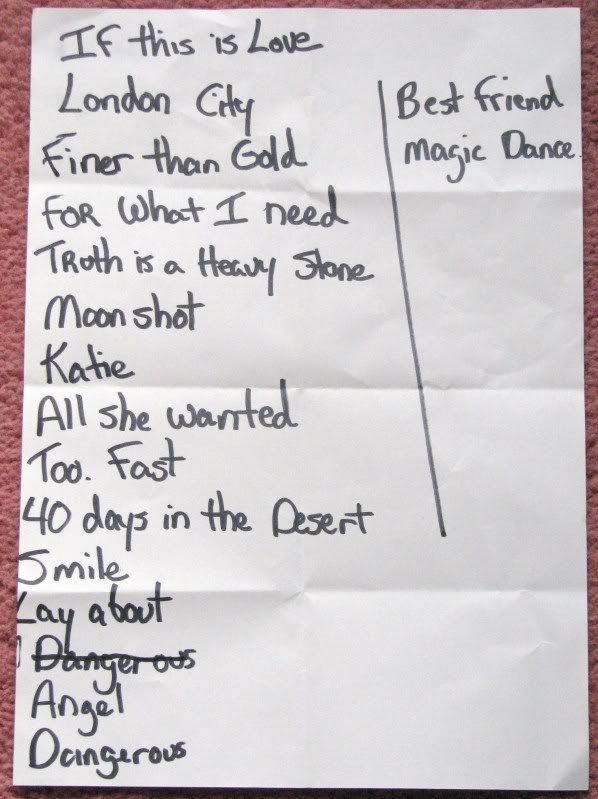 If this is Love
London City
Finer than Gold
FOR What I need
Truth is a Heavy Stone
Moon shot
Katie
All she wanted
Too. Fast
40 days in the Desert
Smile
Lay about
Dangerous
Angel
Dangerous
Best friend
Magic Dance.